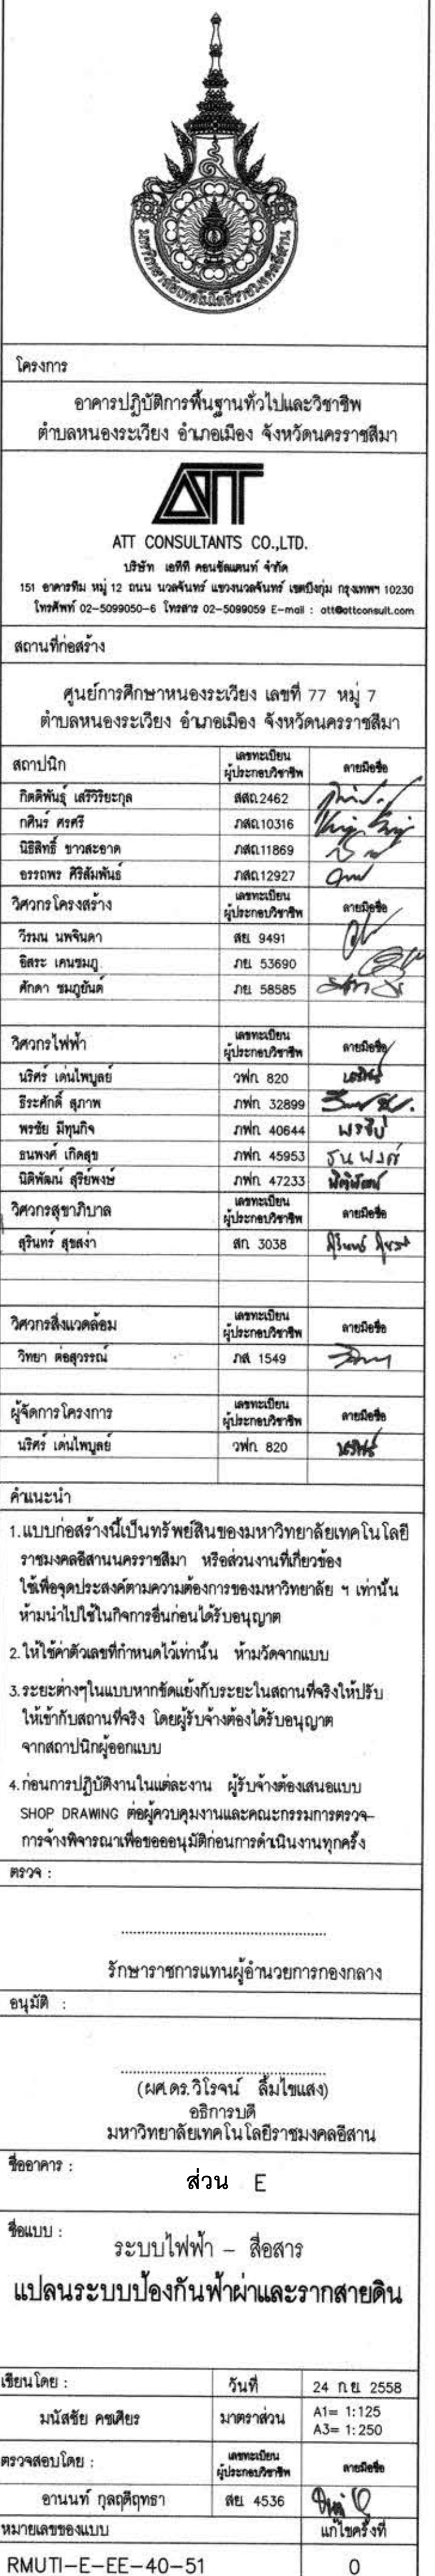 มหาวิทยาลัยเทคโนโลยีราชมงคลอีสาน
โครงการ
อาคารปฏิบัติการพื้นฐานทั่วไปและวิชาชีพ
ตำบลหนองระเวียง อำเภอเมือง จังหวัดนครราชสีมา
ATT
ATT CONSULTANTS CO.,LTD.
บริษัท เอทีที คอนซัลแตนท์ จำกัด
151 อาคารทีม หมู่ 12 ถนน นวลจันทร์ แขวงนวลจันทร์ เขตบึงกุ่ม กรุงเทพฯ 10230
โทรศัพท์ 02-5099050-6 โทรสาร 02-5099059 E-mail : att@attconsult.com
สถานที่ก่อสร้าง
ศูนย์การศึกษาหนองระเวียง เลขที่ 77 หมู่ 7
ตำบลหนองระเวียง อำเภอเมือง จังหวัดนครราชสีมา
สถาปนิก เลขทะเบียนผู้ประกอบวิชาชีพ ลายมือชื่อ
กิตติพันธุ์ เสรีวิริยะกุล สสถ.2462
กศินร์ ศรศรี ภสถ.10316
นิธิสิทธิ์ ขาวสะอาด ภสถ.11869
อรรถพร ศิริสัมพันธ์ ภสถ.12927
วิศวกรโครงสร้าง เลขทะเบียนผู้ประกอบวิชาชีพ ลายมือชื่อ
วีรมน นพจินดา สย. 9491
อิสระ เคนชมภู ภย. 53690
ศักดา ชมภูยันต์ ภย. 58585
วิศวกรไฟฟ้า เลขทะเบียนผู้ประกอบวิชาชีพ ลายมือชื่อ
นริศร์ เด่นไพบูลย์ วฟก. 820
ธีระศักดิ์ สุภาพ ภฟก. 32899
พรชัย มีทุนกิจ ภฟก. 40644
ธนพงศ์ เกิดสุข ภฟก. 45953
นิติพัฒน์ สุรีย์พงษ์ ภฟก. 47233
วิศวกรสุขาภิบาล เลขทะเบียนผู้ประกอบวิชาชีพ ลายมือชื่อ
สุรินทร์ สุขสง่า สก. 3038
วิศวกรสิ่งแวดล้อม เลขทะเบียนผู้ประกอบวิชาชีพ ลายมือชื่อ
วิทยา ต่อสุวรรณ ภส. 1549
ผู้จัดการโครงการ เลขทะเบียนผู้ประกอบวิชาชีพ ลายมือชื่อ
นริศร์ เด่นไพบูลย์ วฟก. 820
คำแนะนำ
1.แบบก่อสร้างนี้เป็นทรัพย์สินของมหาวิทยาลัยเทคโนโลยี
ราชมงคลอีสานนครราชสีมา หรือส่วนงานที่เกี่ยวข้อง
ใช้เพื่อจุดประสงค์ตามความต้องการของมหาวิทยาลัย ฯ เท่านั้น
ห้ามนำไปใช้ในกิจการอื่นก่อนได้รับอนุญาต
2.ให้ใช้ค่าตัวเลขที่กำหนดไว้เท่านั้น ห้ามวัดจากแบบ
3.ระยะต่างๆในแบบหากขัดแย้งกับระยะในสถานที่จริงให้ปรับ
ให้เข้ากับสถานที่จริง โดยผู้รับจ้างต้องได้รับอนุญาต
จากสถาปนิกผู้ออกแบบ
4.ก่อนการปฏิบัติงานในแต่ละงาน ผู้รับจ้างต้องเสนอแบบ
SHOP DRAWING ต่อผู้ควบคุมงานและคณะกรรมการตรวจ-
การจ้างพิจารณาเพื่อขออนุมัติก่อนการดำเนินงานทุกครั้ง
ตรวจ :
รักษาราชการแทนผู้อำนวยการกองกลาง
อนุมัติ :
(ผศ.ดร.วิโรจน์ ลิ้มไขแสง)
อธิการบดี
มหาวิทยาลัยเทคโนโลยีราชมงคลอีสาน
ชื่ออาคาร :
ส่วน E
ชื่อแบบ :
ระบบไฟฟ้า – สื่อสาร
แปลนระบบป้องกันฟ้าผ่าและรากสายดิน
เขียนโดย : วันที่ 24 ก.ย. 2558
มนัสชัย คชเศียร มาตราส่วน A1= 1:125
A3= 1:250
ตรวจสอบโดย : เลขทะเบียนผู้ประกอบวิชาชีพ ลายมือชื่อ
อานนท์ กุลฤดีฤทธา สย. 4536
หมายเลขของแบบ แก้ไขครั้งที่
RMUTI-E-EE-40-51 0